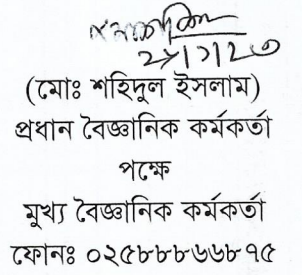 (মোঃ শহিদুল ইসলাম)
প্রধান বৈজ্ঞানিক কর্মকর্তা
পক্ষে
মুখ্য বৈজ্ঞানিক কর্মকর্তা
ফোনঃ ০২৫৮৮৮৬৬৮৭৫